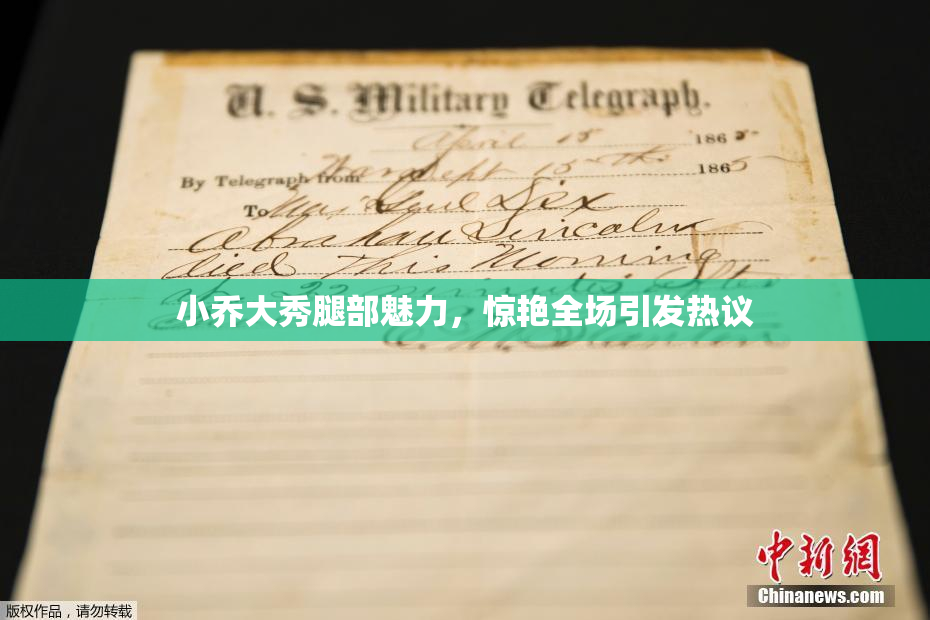 U. S. Military Telegraph.
April 15 1865
By Telegraph from War Dept 15th 1865
To Maj Genl Dix
Abraham Lincoln
died This Morning
at 22 minutes after
小乔大秀腿部魅力，惊艳全场引发热议
E. M. Stanton
中新网
Chinanews.com
版权作品，请勿转载